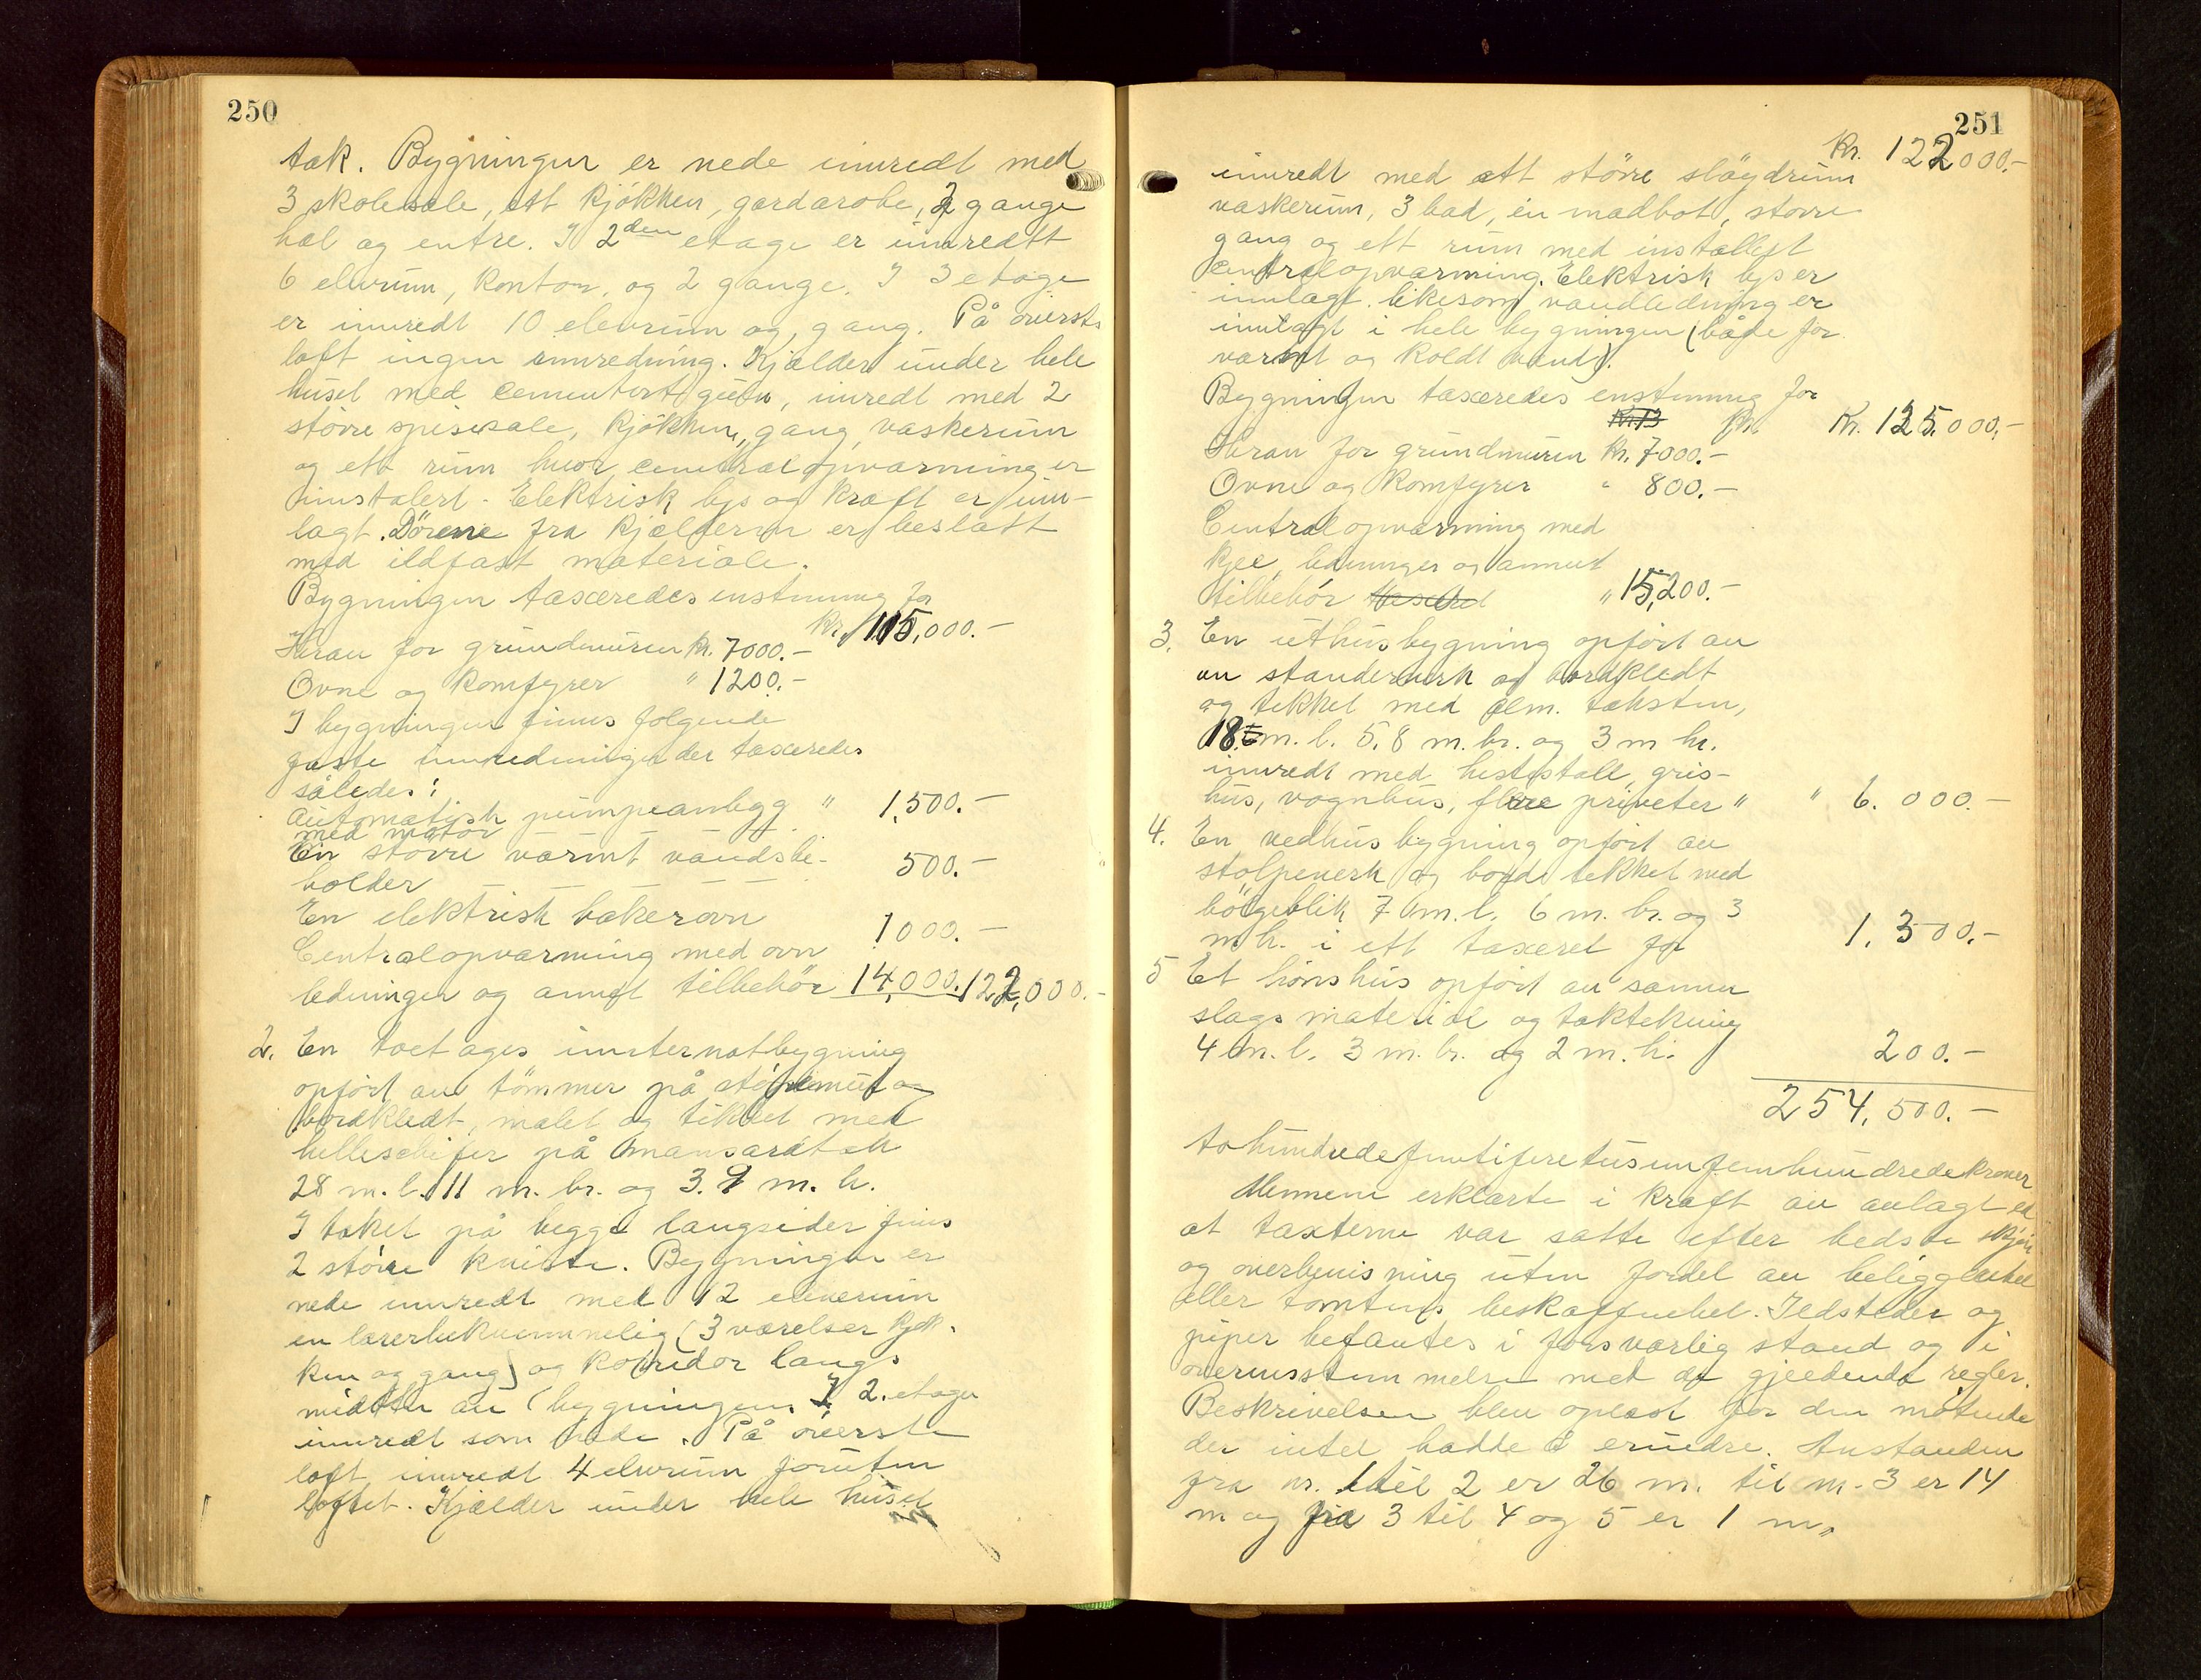 250
tak. Bygningen er nede innredt med
3 skolesale, ett kjøkken, gardarobe, 2 gange
hal og entre. I 2den etage er innredt
6 elevrum, kontor, og 2 gange. I 3 etage
er innredt 10 elevrum og gang. På øverste
loft ingen innredning. Kjælder under hele
huset med cementert gulv, innredt med 2
større spisesale, kjøkken, gang, vaskerum
og ett rum hvor centralopvarming er
instalert. Elektrisk lys og kraft er inn-
lagt. Dørene fra kjælderen er beslått
med ildfast materiale.
Bygningen taxeredes enstemmig for
kr. 115,000.-
Herav for grundmuren kr. 7000.-
Ovne og komfyrer " 1200.-
I bygningen finnes følgende
faste innredninger der taxeredes
således:
Automatisk pumpeanlegg " 1,500.-
med motor
En større varmt vandsbe- 500.-
holder
En elektrisk bakerovn 1000.-
Centralopvarming med ovn
ledninger og annet tilbehør 14,000. 122,000.-
2. En toetages internatbygning
opført av tømmer på støpemur og
bordkledt, malet og tekket med
helleskifer på mansardtak
28 m. l. 11 m. br. og 3.9 m. h.
I taket på begge langsider finnes
2 større kviste. Bygningen er
nede innredt med 12 elevrum
en lærerbekvemmelig (3 værelser kjøk-
ken og gang) og korridor langs
midten av bygningen. I 2. etage
innredt som nede. På øverste
loft innredt 4 elevrum foruten
loftet. Kjælder under hele huset
251
Kr. 122000.-
innredt med ett større sløydrum
vaskerum, 3 bad, en madbod, større
gang og ett rum med installert
centralopvarming. Elektrisk lys er
innlagt likesom vandledning er
innlagt i hele bygningen (både for
varmt og koldt vand).
Bygningen taxeredes enstemmig for
Kr. 13 kr. Kr. 125.000,-
Herav for grundmuren kr. 7000.-
Ovne og komfyrer " 800.-
Centralopvarming med
kjel, ledninger og annet
tilbehør taxeret " 15,200.-
3. En uthusbygning opført av
av standerverk og bordkledt
og tekket med alm. taksten,
18. m. l. 5,8 m. br. og 3 m h.
innredt med hestestall, gris-
hus, vognhus, flere priveter " " 6.000.-
4. En vedhusbygning opført av
stolpeverk og bord tekket med
bølgeblik 7 m. l. 6 m. br. og 3
m h. i ett taxeret for 1.300.-
5 Et hønshus opført av samme
slags material og taktekning
4 m. l. 3 m. br. og 2 m. h. 200.-
254,500.-
tohundredefemtifiretusenfemhundredekroner
Mennene erklærte i kraft av avlagt ed
at taxterne var satte efter bedste skjøn
og overbevisning uten fordel av beliggenhet
eller tomtens beskaffenhet. Ildsteder og
piper befantes i forsvarlig stand og i
overensstemmelse med de gjeldende regler.
Beskrivelsen blev oplæst for den møtende
der intet hadde å erindre. Avstanden
fra nr. 1 til 2 er 26 m. til nr. 3 er 14
m og fra 3 til 4 og 5 er 1 m.